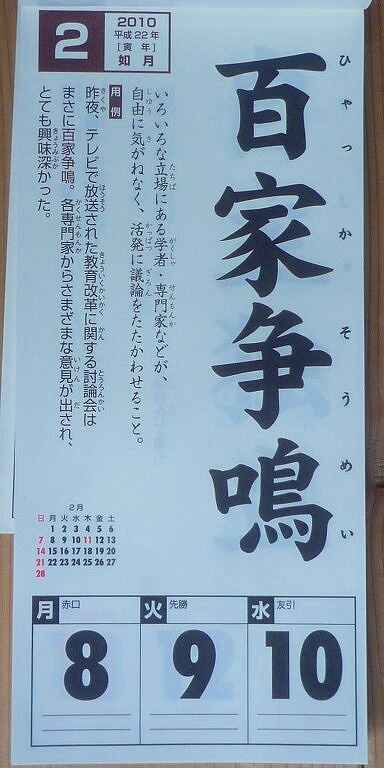 2
2010
平成22年
[寅 年]
如月
百家争鳴
ひゃっかそうめい
いろいろな立場にある学者・専門家などが、
自由に気がねなく、活発に議論をたたかわせること。
用例
昨夜、テレビで放送された教育改革に関する討論会は
まさに百家争鳴。各専門家からさまざまな意見が出され、
とても興味深かった。
2月
日 月 火 水 木 金 土
1 2 3 4 5 6
7 8 9 10 11 12 13
14 15 16 17 18 19 20
21 22 23 24 25 26 27
28
月 赤口
8
火 先勝
9
水 友引
10